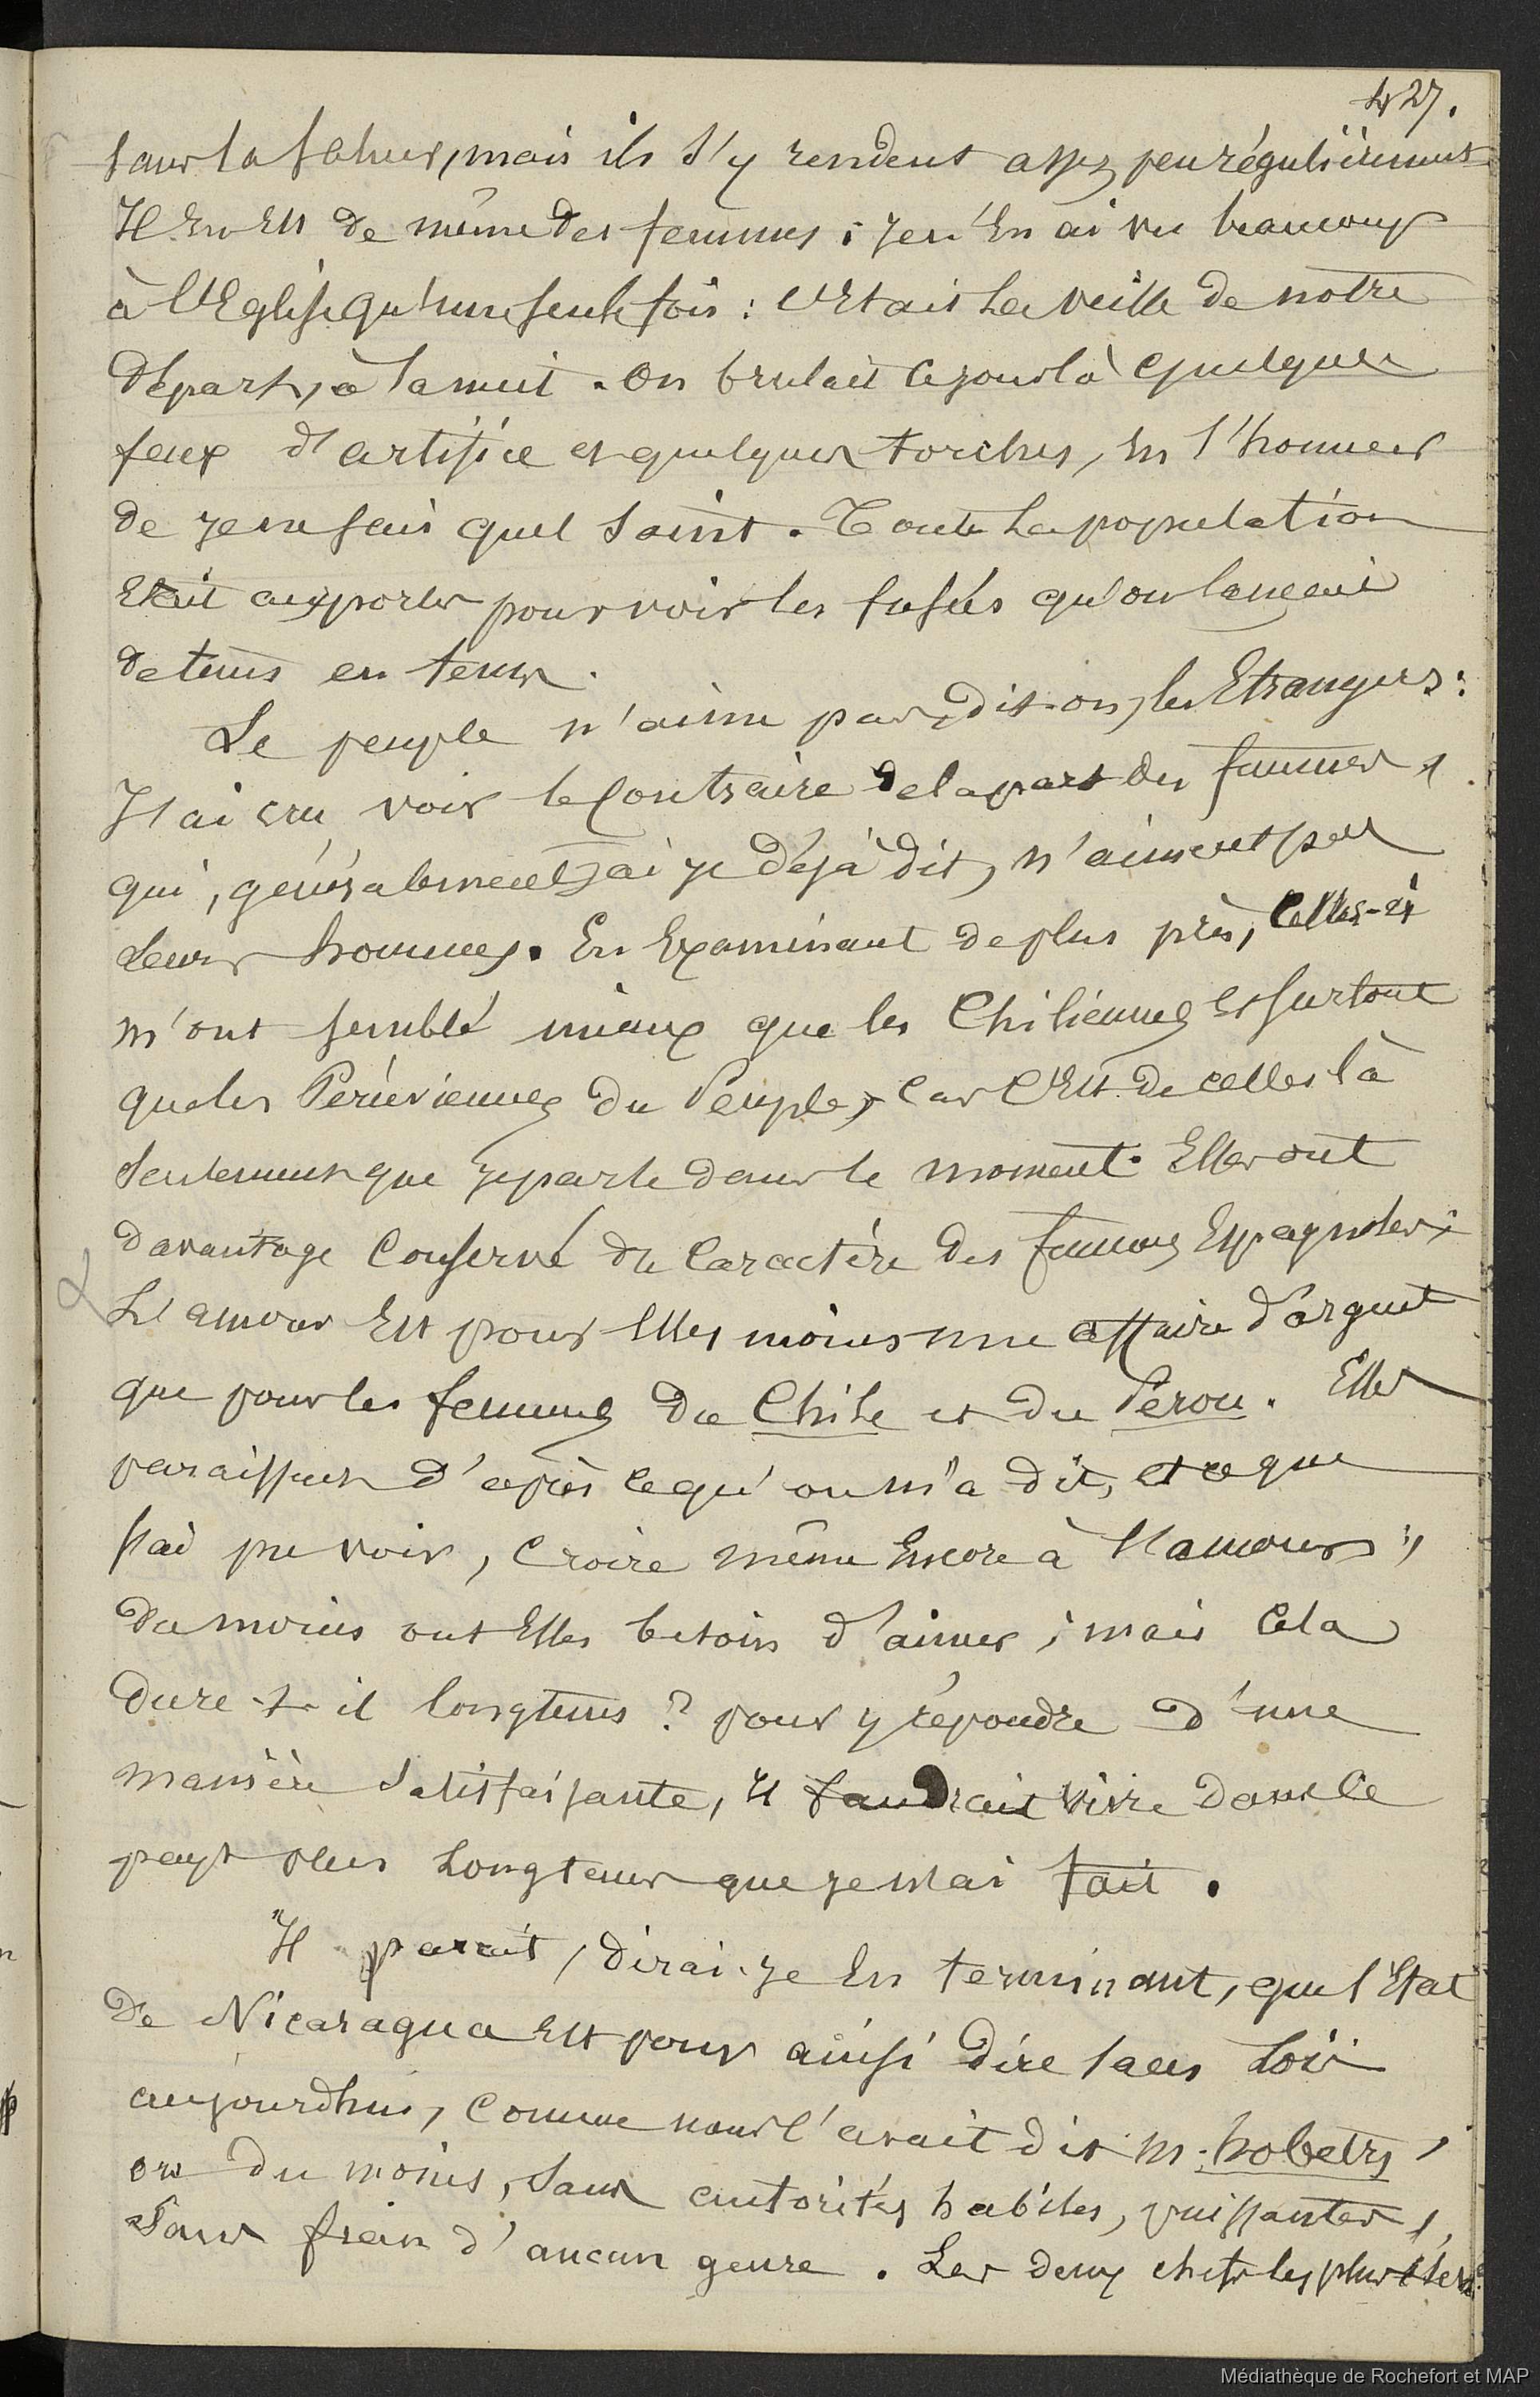 427.
sans la saluer, mais ils s'y rendent assez peu régulièrement
Il en est de même des femmes ; je n'en ai vu beaucoup
à l'Eglise qu'une seule fois : c'était la veille de notre
départ, à la nuit. On brulait ce jour là quelques
feux d'artifice et quelques torches, en l'honneur
de je ne sais quel Saint. Toute la population
était aux portes pour voir les fusées qu'on lançait
de tems en tems.
Le peuple n'aime pas, dit-on, les Etrangers :
J'ai cru voir le Contraire de la part des femmes,
qui, généralement, ai je déjà dit, n'aiment pas
leurs hommes. En Examinant de plus près, Celles-ci
m'ont semblé mieux que les Chiliennes et surtout
que les Péruviennes du Peuple, Car C'est de celles là
Seulement que je parle dans le moment. Elles ont
davantage Conservé du Caractère des femmes Espagnoles ;
L'amour Est pour Elles moins une affaire d'argent
que pour les femmes du Chile et du Perou. Elles
paraissent d'après ce qu'on m'a dit, et ce que
j'ai pu voir, Croire même Encore à l'amour ;
du moins ont Elles besoin d'aimer ; mais Cela
dure-t-il longtems ? pour y répondre d'une
manière Satisfaisante, il faudrait vivre dans le
pays plus longtems que je n'ai fait.
Il parait, dirai-je En terminant, que l'Etat
De Nicaragua est pour ainsi dire sans Loi
aujourdhui, Comme nous l'avait dit M.
ou du moins, Sans autorités habiles, puissantes,
Sans frein d'aucun genre. Les deux chefs les plus
Médiathèque de Rochefort et MAP